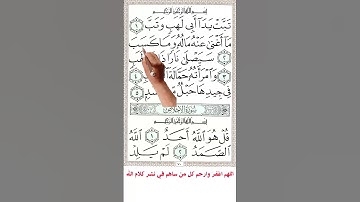 بِسْمِ اللَّهِ الرَّحْمَٰنِ الرَّحِيمِ
تَبَّتْ يَدَا أَبِي لَهَبٍ وَتَبَّ ١
مَا أَغْنَىٰ عَنْهُ مَالُهُ وَمَا كَسَبَ
٢ سَيَصْلَىٰ نَارًا ذَا
٣ وَامْرَأَتُهُ حَمَّالَةَ ٤
فِي جِيدِهَا حَبْلٌ ٥
سُورَةُ الإِخْلَاصِ
بِسْمِ اللَّهِ الرَّحْمَٰنِ الرَّحِيمِ
قُلْ هُوَ اللَّهُ أَحَدٌ ١ اللَّهُ
الصَّمَدُ ٢ لَمْ يَلِدْ
اللهم اغفر وارحم كل من ساهم في نشر كلام الله